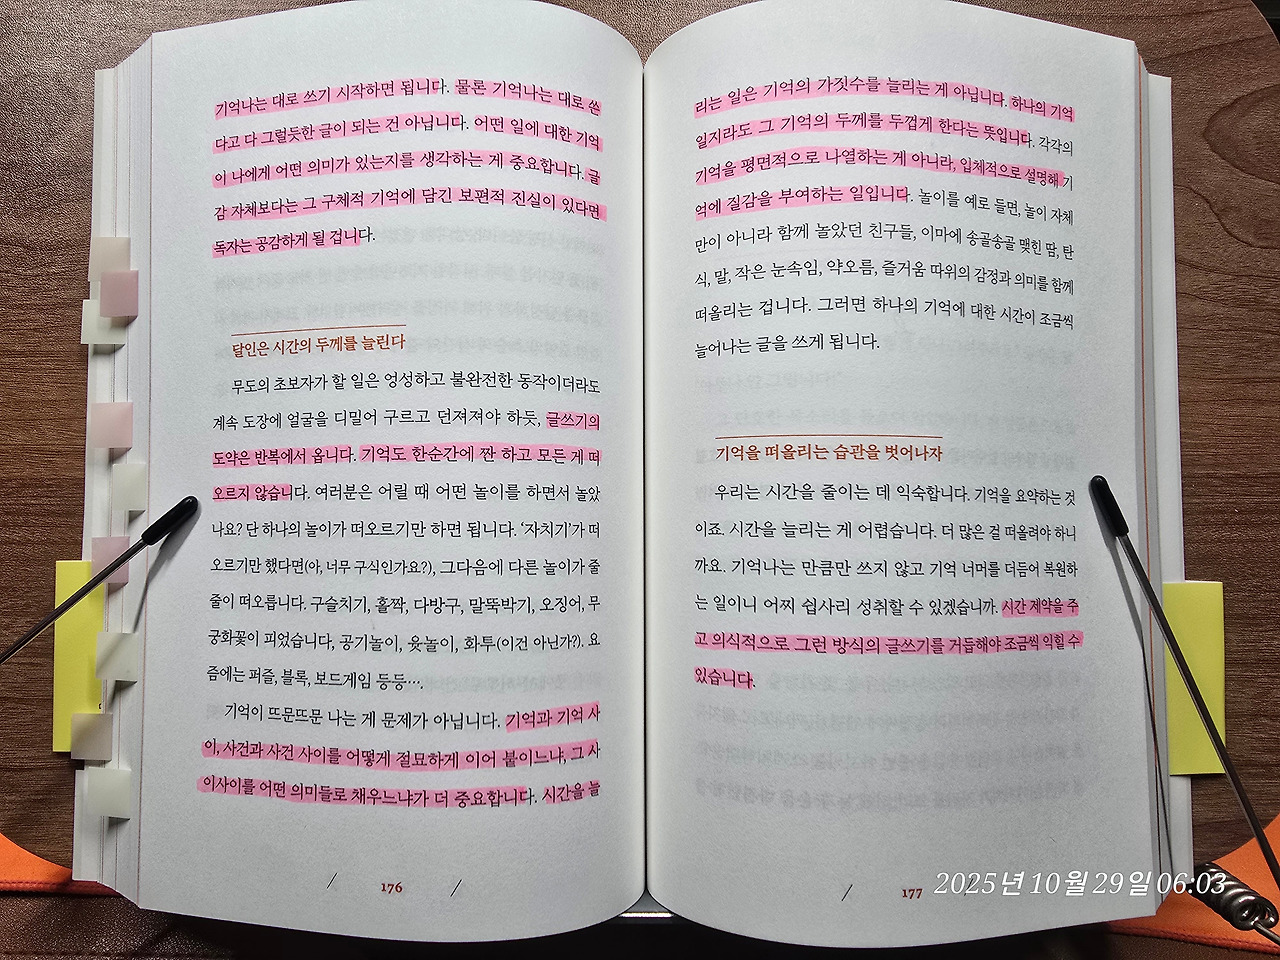 기억나는 대로 쓰기 시작하면 됩니다. 물론 기억나는 대로 쓴
다고 다 그럴듯한 글이 되는 건 아닙니다. 어떤 일에 대한 기억
이 나에게 어떤 의미가 있는지를 생각하는 게 중요합니다. 글
감 자체보다는 그 구체적 기억에 담긴 보편적 진실이 있다면
독자는 공감하게 될 겁니다.
달인은 시간의 두께를 늘린다
무도의 초보자가 할 일은 엉성하고 불완전한 동작이더라도
계속 도장에 얼굴을 디밀어 구르고 던져져야 하듯, 글쓰기의
도약은 반복에서 옵니다. 기억도 한순간에 짠 하고 모든 게 떠
오르지 않습니다. 여러분은 어릴 때 어떤 놀이를 하면서 놀았
나요? 단 하나의 놀이가 떠오르기만 하면 됩니다. ‘자치기’가 떠
오르기만 했다면(아, 너무 구식인가요?), 그다음에 다른 놀이가 줄
줄이 떠오릅니다. 구슬치기, 홀짝, 다방구, 말뚝박기, 오징어, 무
궁화꽃이 피었습니다, 공기놀이, 윷놀이, 화투(이건 아닌가?). 요
즘에는 퍼즐, 블록, 보드게임 등등….
기억이 뜨문뜨문 나는 게 문제가 아닙니다. 기억과 기억 사
이, 사건과 사건 사이를 어떻게 절묘하게 이어 붙이느냐, 그 사
이사이를 어떤 의미들로 채우느냐가 더 중요합니다. 시간을 늘
176
리는 일은 기억의 가짓수를 늘리는 게 아닙니다. 하나의 기억
일지라도 그 기억의 두께를 두껍게 한다는 뜻입니다. 각각의
기억을 평면적으로 나열하는 게 아니라, 입체적으로 설명해 기
억에 질감을 부여하는 일입니다. 놀이를 예로 들면, 놀이 자체
만이 아니라 함께 놀았던 친구들, 이마에 송골송골 맺힌 땀, 탄
식, 말, 작은 눈속임, 약오름, 즐거움 따위의 감정과 의미를 함께
떠올리는 겁니다. 그러면 하나의 기억에 대한 시간이 조금씩
늘어나는 글을 쓰게 됩니다.
기억을 떠올리는 습관을 벗어나자
우리는 시간을 줄이는 데 익숙합니다. 기억을 요약하는 것
이죠. 시간을 늘리는 게 어렵습니다. 더 많은 걸 떠올려야 하니
까요. 기억나는 만큼만 쓰지 않고 기억 너머를 더듬어 복원하
는 일이니 어찌 쉽사리 성취할 수 있겠습니까. 시간 제약을 주
고 의식적으로 그런 방식의 글쓰기를 거듭해야 조금씩 익힐 수
있습니다.
177
2025년 10월 29일 06:03